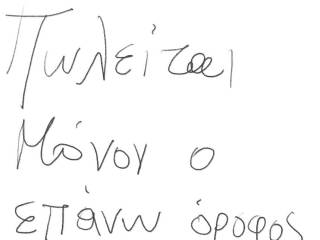 Πωλείται
Μόνου ο
επάνω όροφος